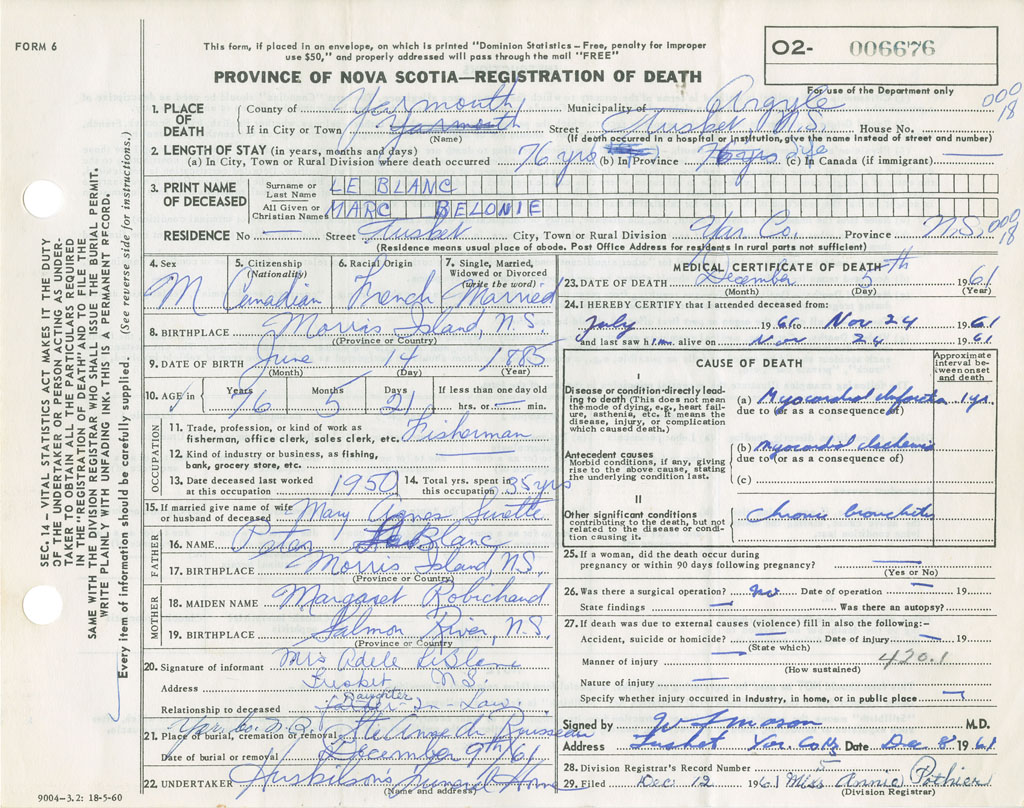 FORM 6
This form, if placed in an envelope, on which is printed "Dominion Statistics – Free, penalty for improper
use $50," and properly addressed will pass through the mail "FREE"
O2- 006676
PROVINCE OF NOVA SCOTIA—REGISTRATION OF DEATH
For use of the Department only
000
18
1. PLACE OF DEATH
County of Yarmouth Municipality of Argyle
If in City or Town Yarmouth Street Tusket, N.S. House No.
(Name) (If death occurred in a hospital or institution, give the name instead of street and number)
2. LENGTH OF STAY (in years, months and days)
(a) In City, Town or Rural Division where death occurred 76 yrs (b) In Province 76 yrs (c) In Canada (if immigrant) —
3. PRINT NAME OF DECEASED
Surname or Last Name LE BLANC
All Given or Christian Names MARC BELONIE
RESIDENCE No — Street Tusket City, Town or Rural Division Yar Co. Province N.S.
000
18
(Residence means usual place of abode. Post Office Address for residents in rural parts not sufficient)
4. Sex M
5. Citizenship (Nationality) Canadian
6. Racial Origin French
7. Single, Married, Widowed or Divorced (write the word) Married
8. BIRTHPLACE Morris Island, N.S.
(Province or Country)
9. DATE OF BIRTH June 14 1885
(Month) (Day) (Year)
10. AGE in Years 76 Months 5 Days 21 If less than one day old
hrs. or — min.
OCCUPATION
11. Trade, profession, or kind of work as
fisherman, office clerk, sales clerk, etc. Fisherman
12. Kind of industry or business, as fishing,
bank, grocery store, etc. —
13. Date deceased last worked
at this occupation 1950
14. Total yrs. spent in
this occupation 35 yrs
15. If married give name of wife
or husband of deceased Mary Agnes Surette
FATHER
16. NAME Peter LeBlanc
17. BIRTHPLACE Morris Island, N.S.
(Province or Country)
MOTHER
18. MAIDEN NAME Margaret Robichaud
19. BIRTHPLACE Salmon River, N.S.
(Province or Country)
20. Signature of informant Mrs Adele LeBlanc
Address Tusket N.S.
Relationship to deceased Daughter-In-Law
21. Place of burial, cremation or removal Yar. Co. Ste Anne du Ruisseau
Date of burial or removal December 9th /61
22. UNDERTAKER Huskilson's Funeral Home
(Name and address)
MEDICAL CERTIFICATE OF DEATH
23. DATE OF DEATH December 5th 1961
(Month) (Day) (Year)
24. I HEREBY CERTIFY that I attended deceased from:
July 1961 to Nov 24 1961
and last saw h im alive on Nov 24 1961
CAUSE OF DEATH
Approximate interval between onset and death
I
Disease or condition directly leading to death (This does not mean
the mode of dying, e.g., heart failure, asthenia, etc. It means the
disease, injury, or complication
which caused death.)
(a) Myocardial Infarction 1 yr.
due to (or as a consequence of)
Antecedent causes
Morbid conditions, if any, giving
rise to the above cause, stating
the underlying condition last.
(b) myocardial Ischemia
due to (or as a consequence of)
(c)
II
Other significant conditions
contributing to the death, but not
related to the disease or condition causing it.
chronic bronchitis
25. If a woman, did the death occur during
pregnancy or within 90 days following pregnancy? —
(Yes or No)
26. Was there a surgical operation? no Date of operation — 19
State findings — Was there an autopsy? —
27. If death was due to external causes (violence) fill in also the following:–
Accident, suicide or homicide? — Date of injury — 19
(State which)
Manner of injury — 420.1
(How sustained)
Nature of injury —
Specify whether injury occurred in industry, in home, or in public place —
Signed by M.D.
Address Tusket Yar. Co. Date Dec 8 1961
28. Division Registrar's Record Number 5
29. Filed Dec 12 1961 Miss Annie Pothier
(Division Registrar)
SEC. 14 – VITAL STATISTICS ACT MAKES IT THE DUTY
OF THE UNDERTAKER OR PERSON ACTING AS UNDERTAKER TO OBTAIN ALL THE PARTICULARS REQUIRED
IN THE "REGISTRATION OF DEATH" AND TO FILE THE
SAME WITH THE DIVISION REGISTRAR WHO SHALL ISSUE THE BURIAL PERMIT.
WRITE PLAINLY WITH UNFADING INK. THIS IS A PERMANENT RECORD.
Every item of information should be carefully supplied. (See reverse side for instructions.)
9004–3.2: 18-5-60